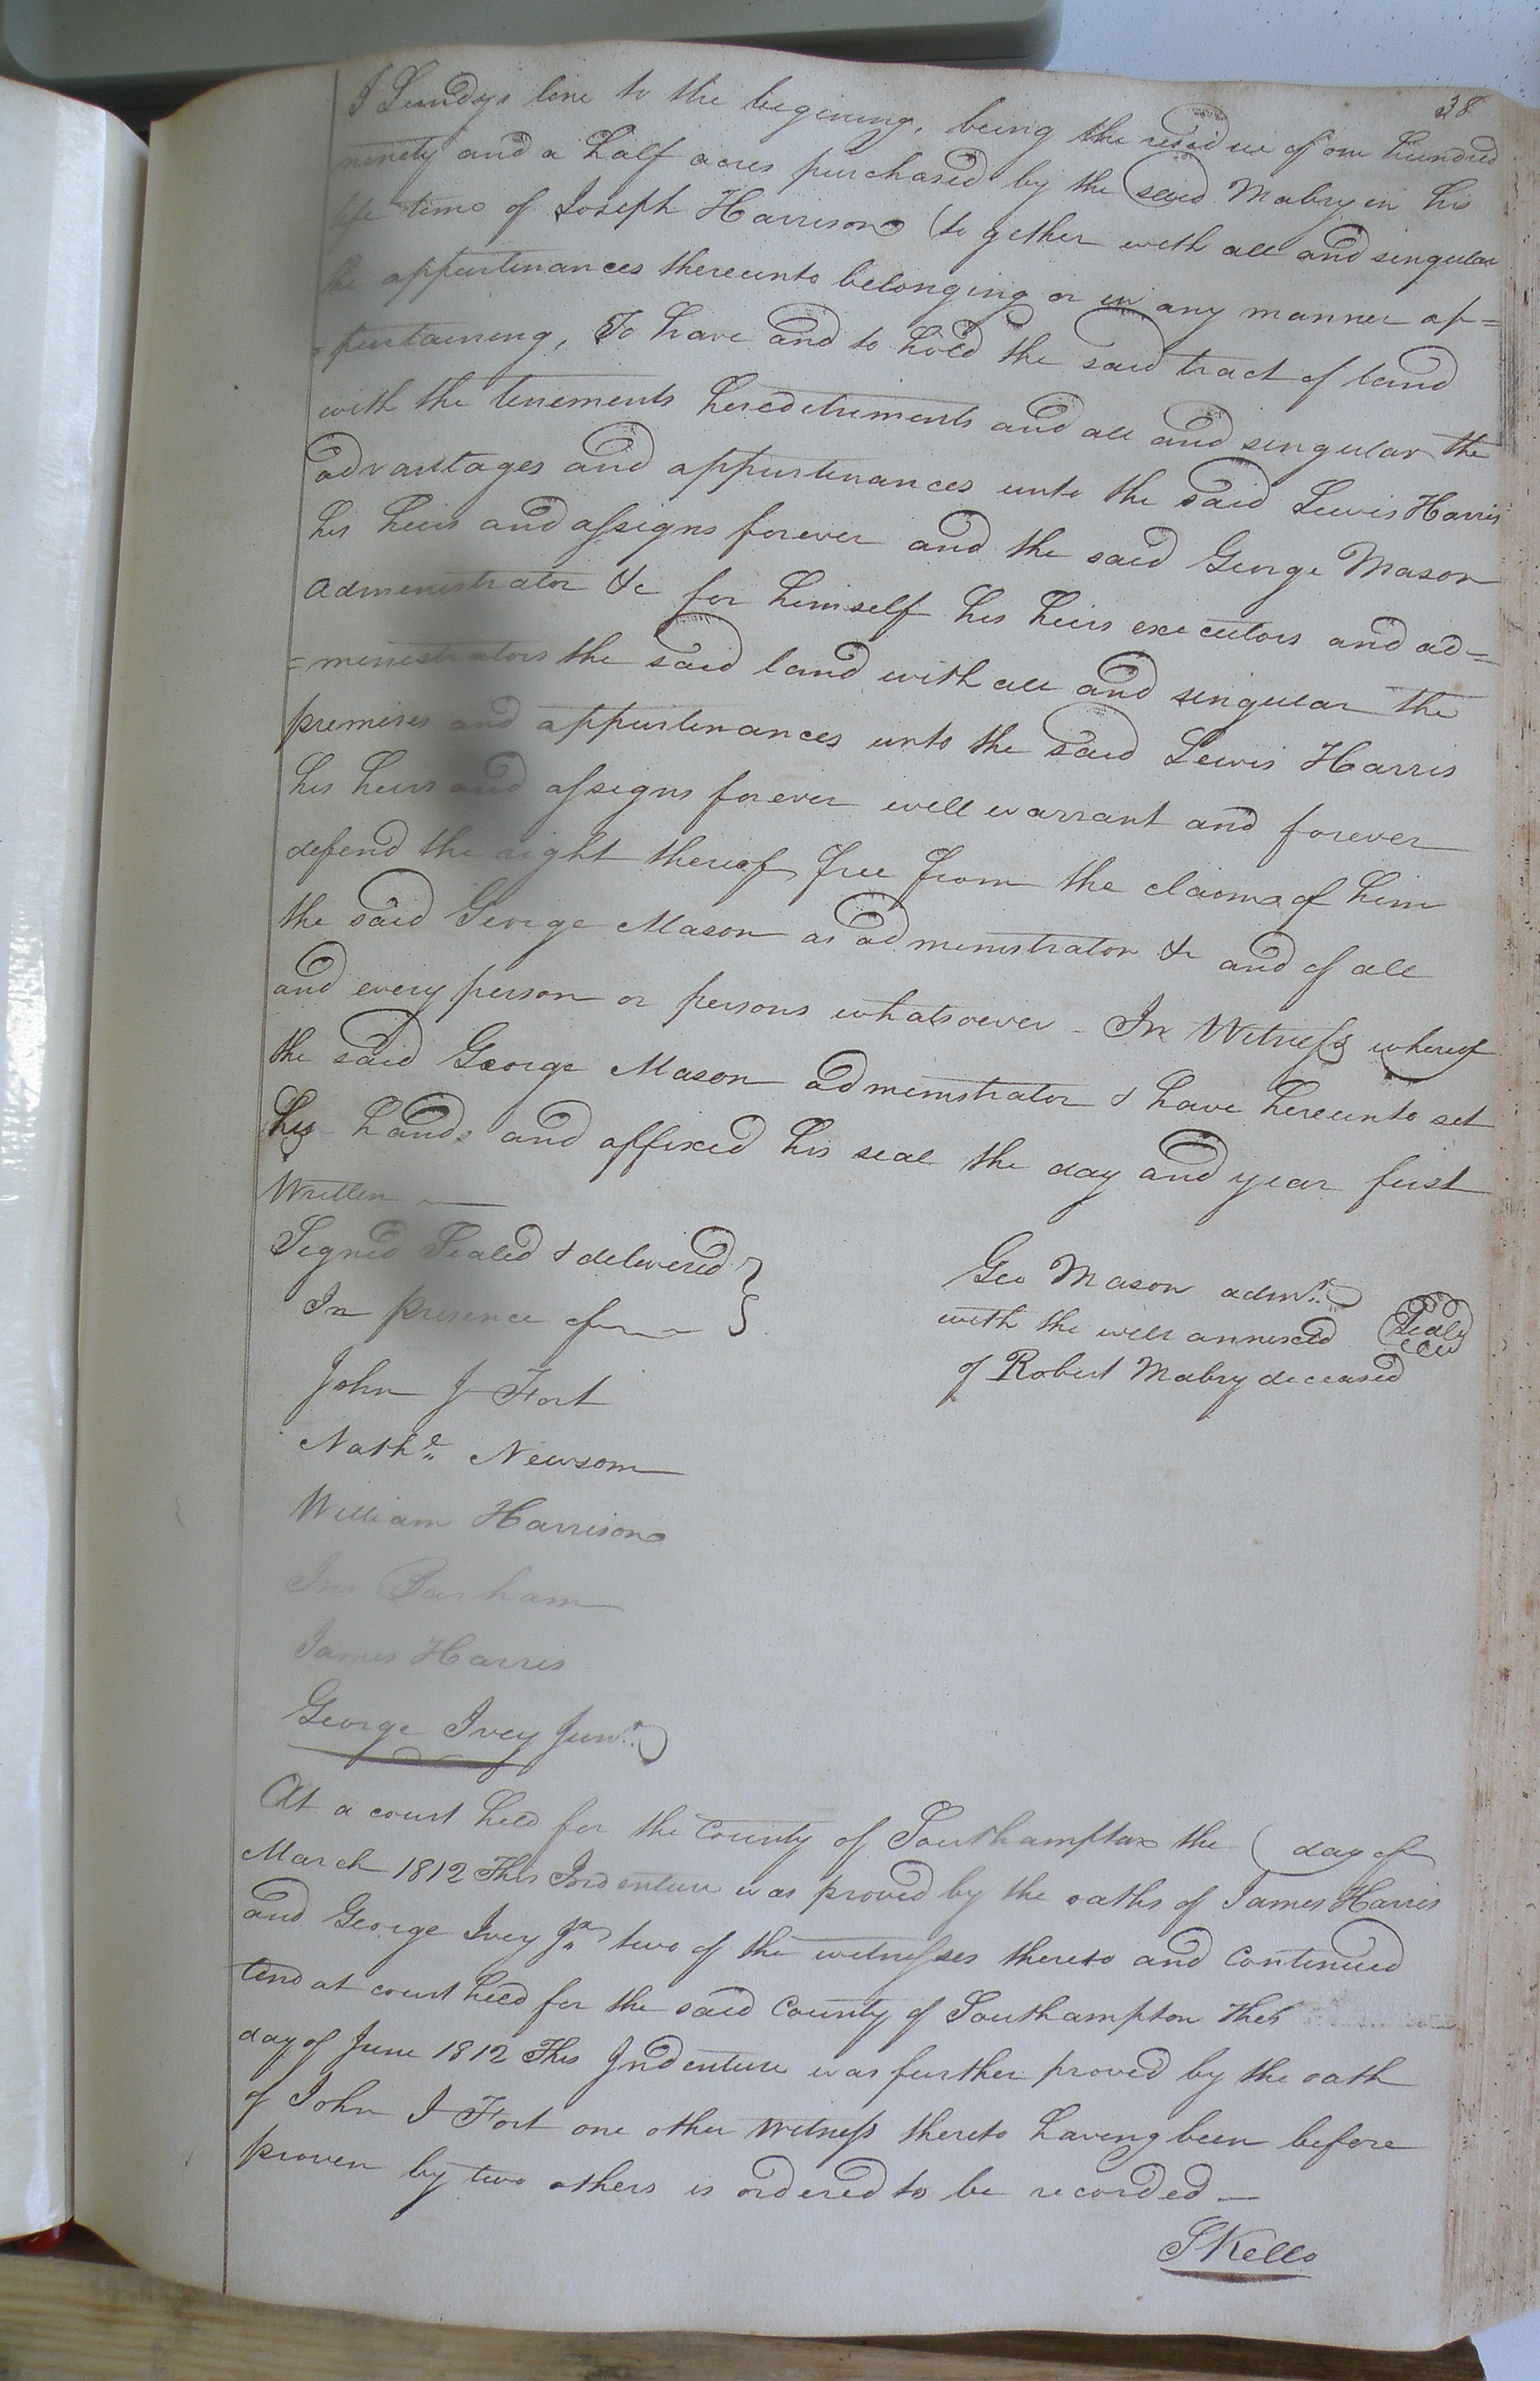 38
J Lundys line to the begining, being the residue of one hundred
ninety and a half acres purchased by the said Mabry in his
life time of Joseph Harrison (together with all and singular
the appurtinances thereunto belonging or in any manner ap=
=purtaining, To have and to hold the said tract of land
with the tenements hereditiments and all and singular the
advantages and appurtinances unto the said Lewis Harris
his heirs and assigns forever and the said George Mason
administrator &c for himself his heirs executors and ad=
=ministrators the said land with all and singular the
premises and appurtinances unto the said Lewis Harris
his heirs and assigns forever will warrant and forever
defend the right thereof free from the claims of him
the said George Mason as administrator &c and of all
and every person or persons whatsoever - In Witness whereof
the said George Mason administrator & have hereunto set
his hand and affixed his seal the day and year first
Written
Signed Sealed & delivered
In presence of
Geo Mason admr.
with the will annexed Seal
of Robert Mabry deceased
John J Fort
Nathl. Newsom
William Harrison
Jno Barham
James Harris
George Ivey Junr.
At a court held for the County of Southampton the ( day of
March 1812 This Indenture was proved by the oaths of James Harris
and George Ivey Jr. two of the witnesses thereto and Continued
And at court held for the said County of Southampton the
day of June 1812 This Indenture was further proved by the oath
of John J Fort one other Witness thereto having been before
proven by two others is ordered to be recorded -
S Kello